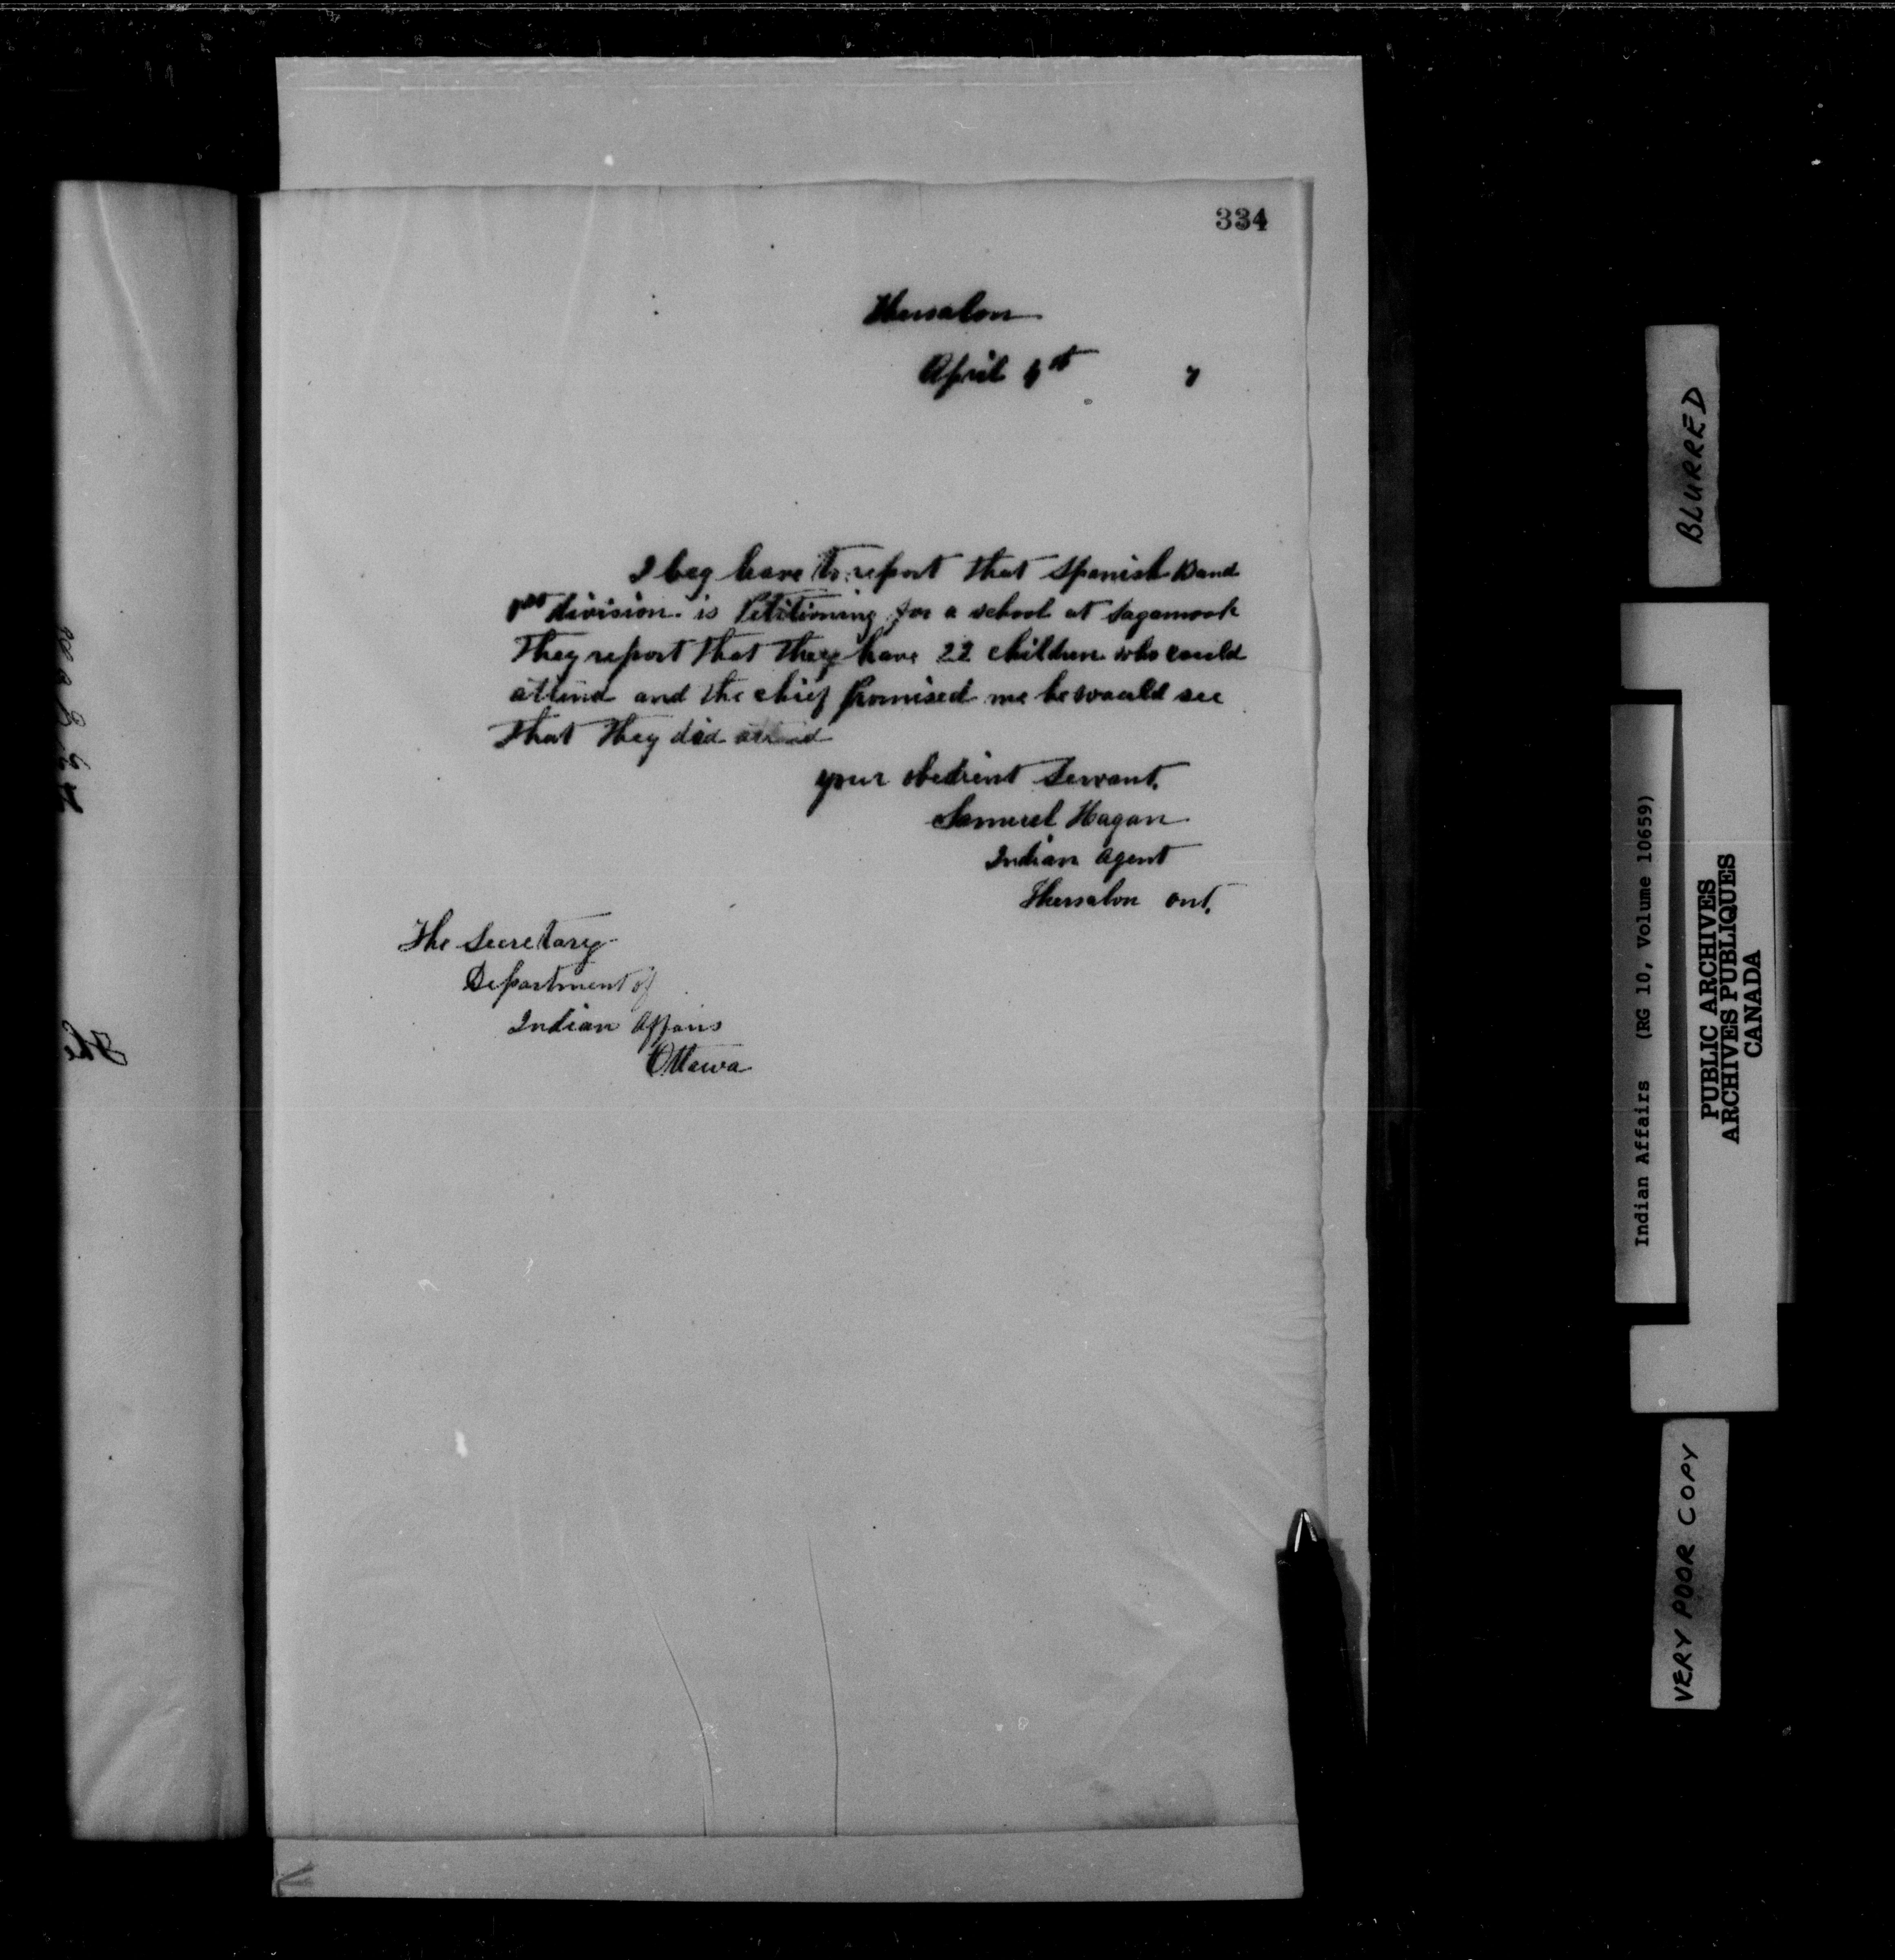 334
Thessalon
April 1st 7
I beg leave to report that Spanish Band
1st division is Petitioning for a school at Sagamook
They report that they have 22 children who could
attend and the chief promised me he would see
that they did attend
your obedient Servant.
Samuel Hagan
Indian Agent
Thessalon Ont.
The Secretary
Department of
Indian Affairs
Ottawa
BLURRED
Indian Affairs (RG 10, Volume 10659)
PUBLIC ARCHIVES
ARCHIVES PUBLIQUES
CANADA
VERY POOR COPY